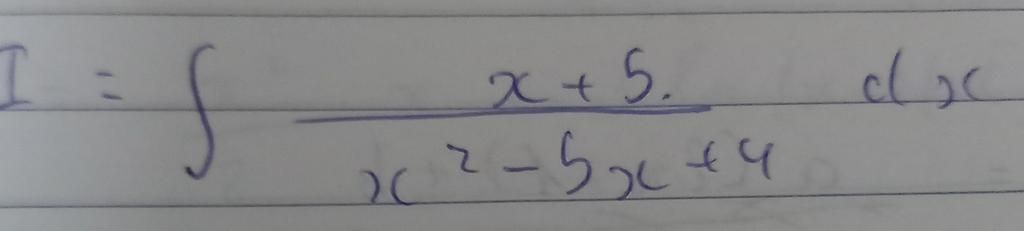 I = ∫ (x + 5.) / (x² - 5x + 4) dx